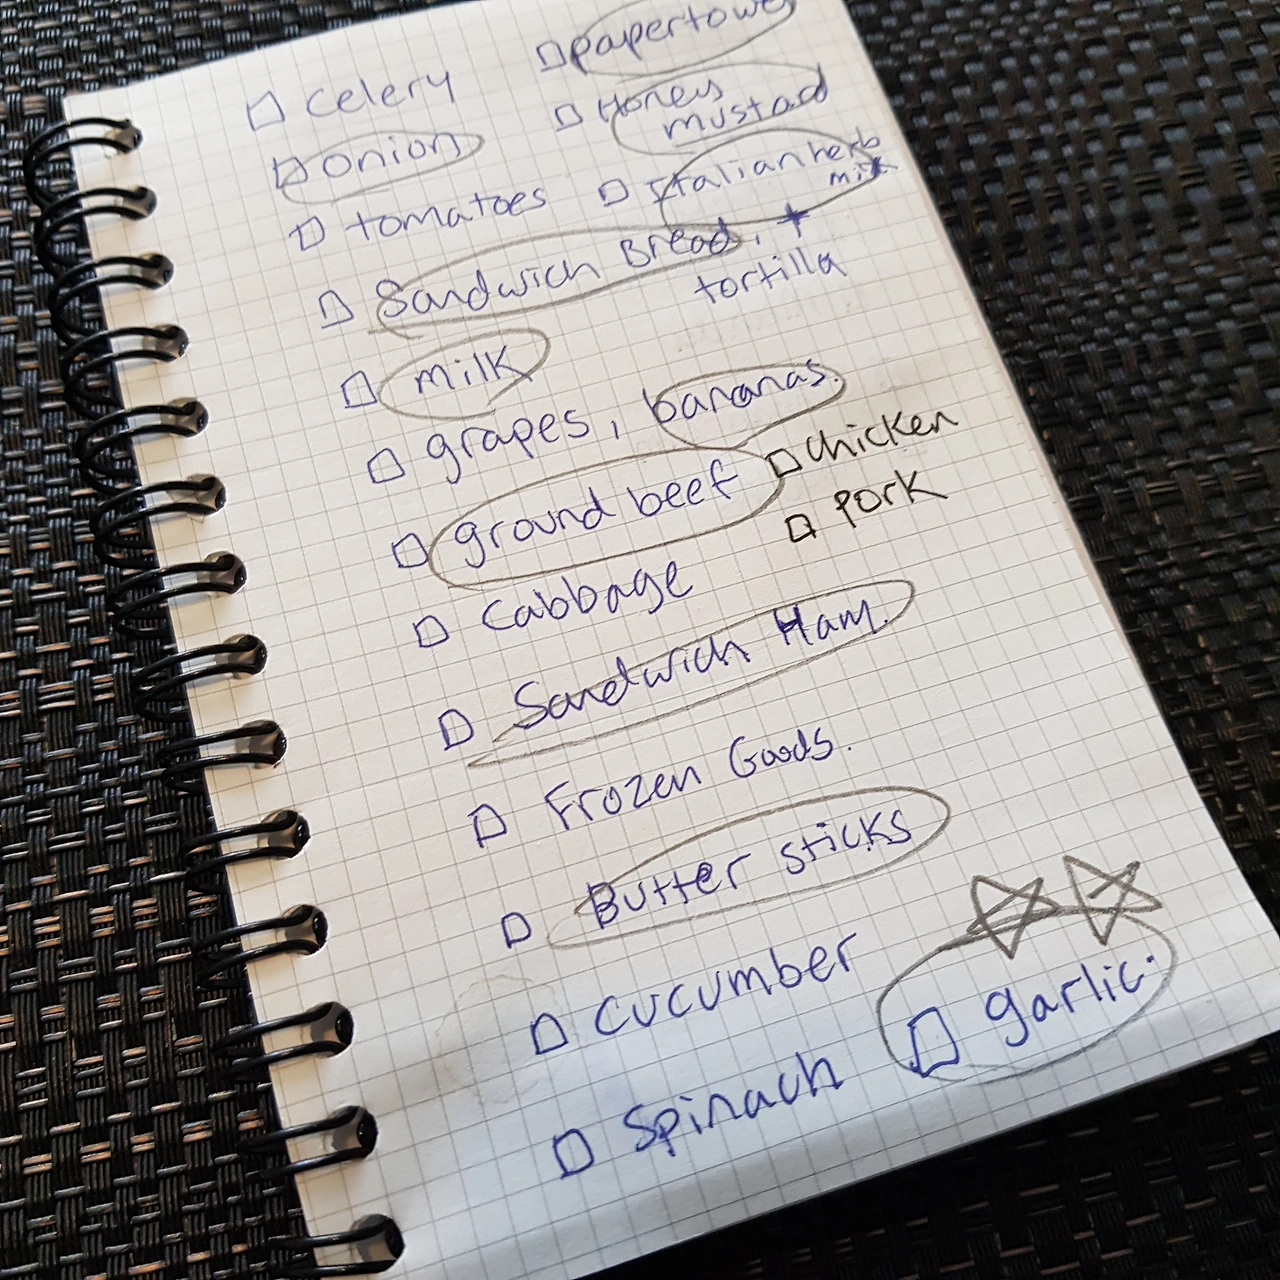 papertowe
celery
Honey
mustard
onion
Italian herb
mix
tomatoes
Sandwich Bread, +
tortilla
milk
grapes, bananas.
chicken
ground beef
pork
cabbage
Sandwich Ham.
Frozen Goods.
Butter sticks
cucumber
garlic.
Spinach